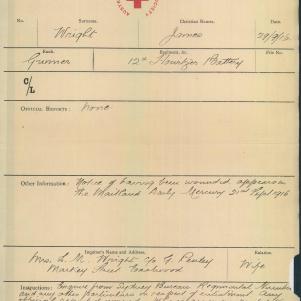 AUST
SOCIETY
No. Surname. Christian Names. Date.
Wright James 28/9/16
Rank. Regiment, &c. File No.
Gunner 12th Howitzer Battery
C/L
OFFICIAL REPORTS: None
Other Information: Notice of having been wounded appears in
the Maitland Daily Mercury 21st Sept 1916
Inquirer's Name and Address. Relation
Mrs. L. M. Wright c/o G. Penley Wife
Market Street Eastwood
INSTRUCTIONS: Enquire from Sydney Bureau Regimental Number
and any other particulars in respect of enlistment. Any